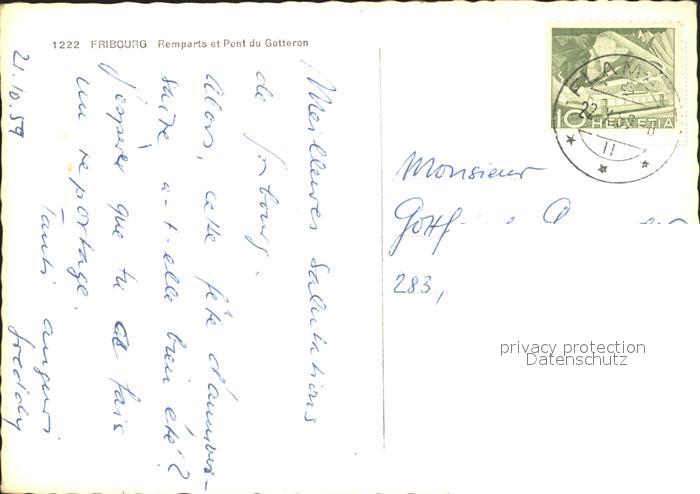 1222 FRIBOURG Remparts et Pont du Gotteron
Meilleures Salutations
de fribourg.
Alors, cette fête d'anniver-
saire a-t-elle bien été?
J'espère que tu as fais
un reportage.
Tanti auguri
freddy
21.10.59
FLAMA
22.X.59
II
10 HELVETIA
Monsieur
283,
privacy protection
Datenschutz